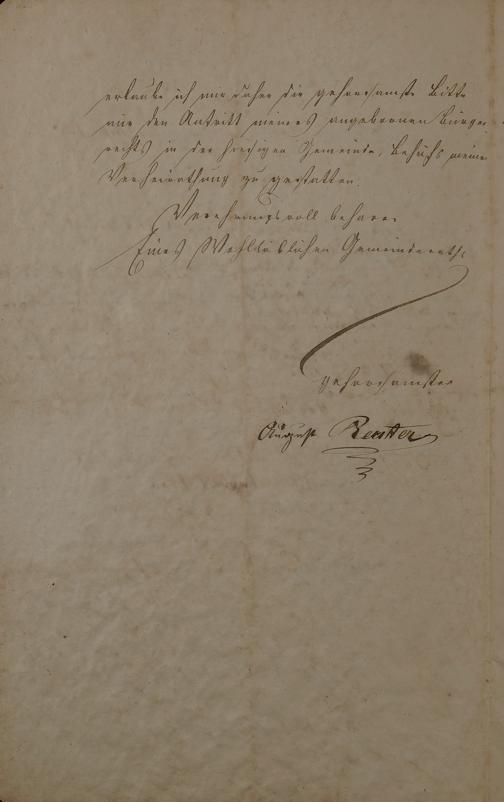 erlaube ich mir daher die gehorsamste Bitte
mir den Antritt meines angebornen Bürger
rechts in der hiesigen Gemeinde, behufs meiner
Verheirathung zu gestatten.
Verehrungsvoll beharre
Eines Wohllöblichen Gemeinderaths
gehorsamster
August